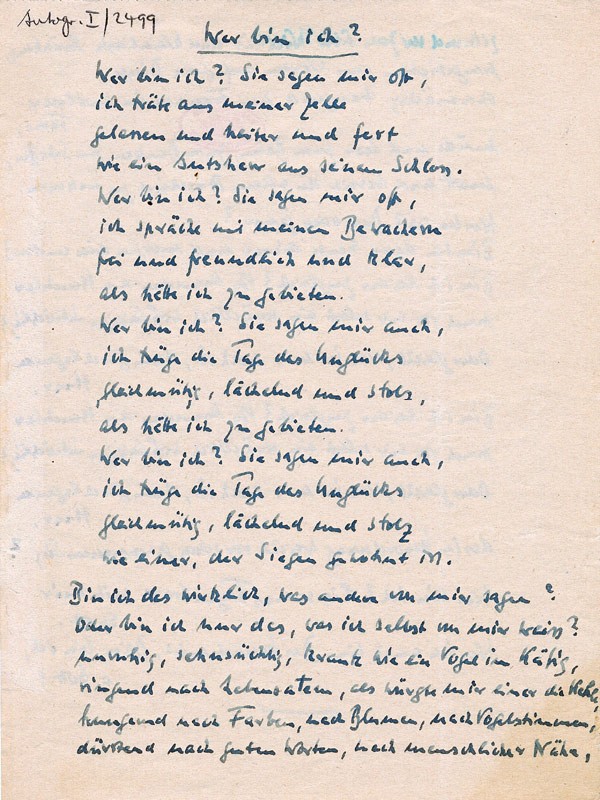 Autogr. I/2499
Wer bin ich?
Wer bin ich? Sie sagen mir oft,
ich träte aus meiner Zelle
gelassen und heiter und fest
wie ein Gutsherr aus seinem Schloss.
Wer bin ich? Sie sagen mir oft,
ich spräche mit meinen Bewachern
frei und freundlich und klar,
als hätte ich zu gebieten.
Wer bin ich? Sie sagen mir auch,
ich trüge die Tage des Unglücks
gleichmütig, lächelnd und stolz,
als hätte ich zu gebieten.
Wer bin ich? Sie sagen mir auch,
ich trüge die Tage des Unglücks
gleichmütig, lächelnd und stolz
wie einer, der Siegen gewohnt ist.
Bin ich das wirklich, was andere von mir sagen?
Oder bin ich nur das, was ich selbst von mir weiss?
unruhig, sehnsüchtig, krank wie ein Vogel im Käfig,
ringend nach Lebensatem, als würgte mir einer die Kehle,
hungernd nach Farben, nach Blumen, nach Vogelstimmen,
dürstend nach guten Worten, nach menschlicher Nähe,